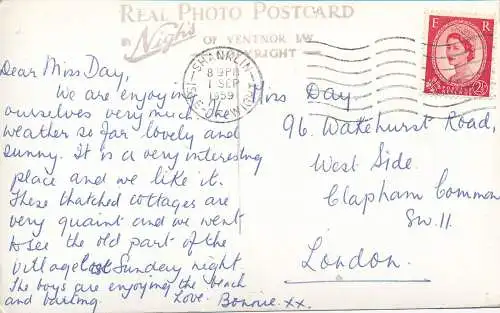 REAL PHOTO POSTCARD
Nigh's
OF VENTNOR I.W.
COPYRIGHT
SHANKLIN
8 PM
1 SEP
1959
ISLE OF WIGHT
E R
POSTAGE REVENUE
2½D
Dear Miss Day,
We are enjoying
ourselves very much. The
weather so far lovely and
sunny. It is a very interesting
place and we like it.
These thatched cottages are
very quaint and we went
to see the old part of the
village last Sunday night.
The boys are enjoying the beach
and bathing. Love. Bonnie. xx.
Miss Day.
96. Wakehurst Road,
West Side.
Clapham Common
S.W.11.
London.